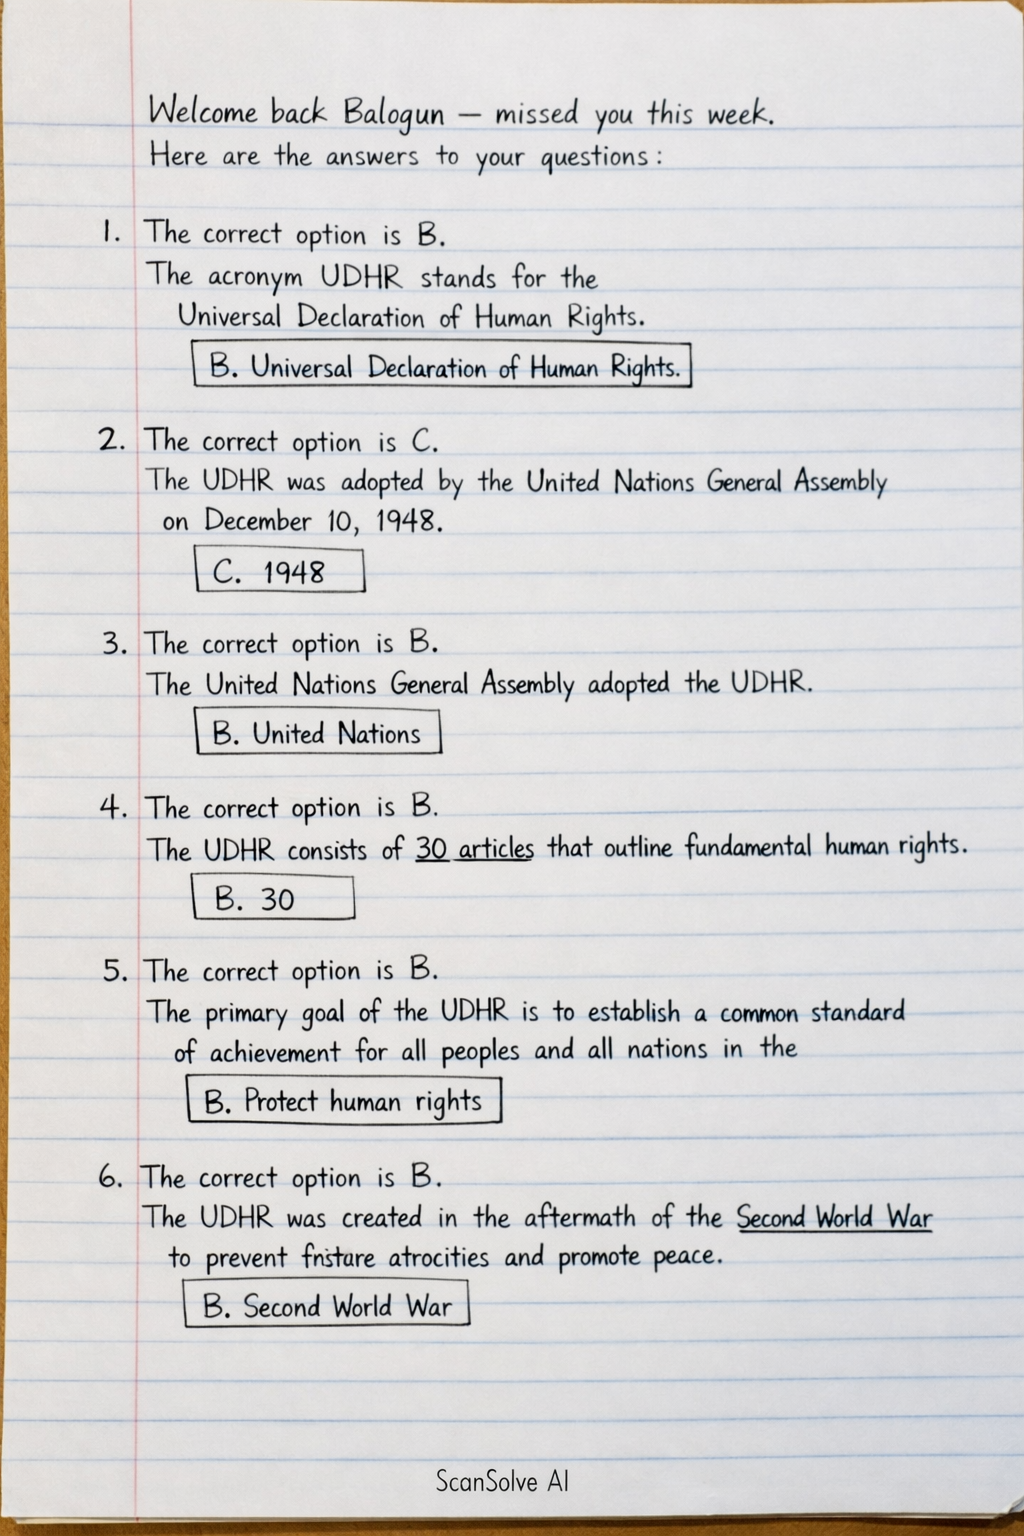 Welcome back Balogun — missed you this week.
Here are the answers to your questions:
1. The correct option is B.
The acronym UDHR stands for the
Universal Declaration of Human Rights.
B. Universal Declaration of Human Rights.
2. The correct option is C.
The UDHR was adopted by the United Nations General Assembly
on December 10, 1948.
C. 1948
3. The correct option is B.
The United Nations General Assembly adopted the UDHR.
B. United Nations
4. The correct option is B.
The UDHR consists of 30 articles that outline fundamental human rights.
B. 30
5. The correct option is B.
The primary goal of the UDHR is to establish a common standard
of achievement for all peoples and all nations in the
B. Protect human rights
6. The correct option is B.
The UDHR was created in the aftermath of the Second World War
to prevent atrocities and promote peace.
B. Second World War
ScanSolve AI